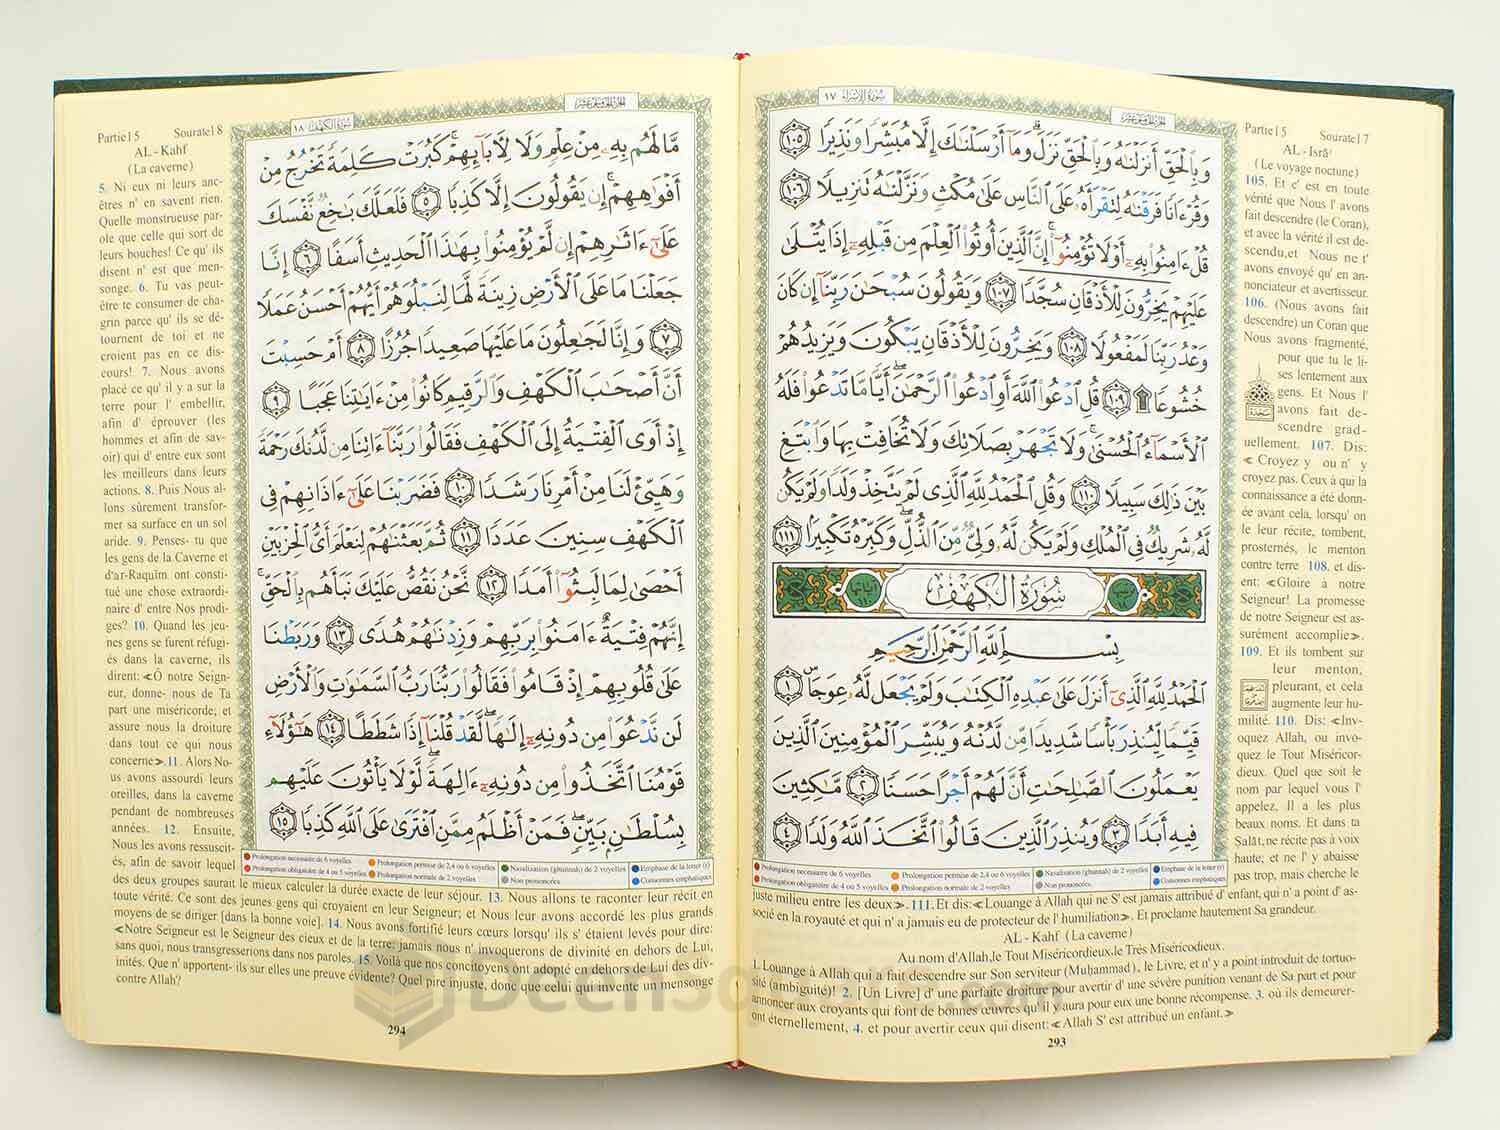 سُورَةُ الإِسْرَاء ١٧
الجزء الخامس عشر
وَبِالْحَقِّ أَنزَلْنَٰهُ وَبِالْحَقِّ نَزَلَ ۗ وَمَا أَرْسَلْنَٰكَ إِلَّا مُبَشِّرًا وَنَذِيرًا ١٠٥
وَقُرْءَانًا فَرَقْنَٰهُ لِتَقْرَأَهُ عَلَى النَّاسِ عَلَىٰ مُكْثٍ وَنَزَّلْنَٰهُ تَنزِيلًا ١٠٦
قُلْ ءَامِنُوا بِهِۦٓ أَوْ لَا تُؤْمِنُوٓا ۚ إِنَّ الَّذِينَ أُوتُوا الْعِلْمَ مِن قَبْلِهِۦٓ إِذَا يُتْلَىٰ
عَلَيْهِمْ يَخِرُّونَ لِلْأَذْقَانِ سُجَّدًا ١٠٧ وَيَقُولُونَ سُبْحَٰنَ رَبِّنَآ إِن كَانَ
وَعْدُ رَبِّنَا لَمَفْعُولًا ١٠٨ وَيَخِرُّونَ لِلْأَذْقَانِ يَبْكُونَ وَيَزِيدُهُمْ
خُشُوعًا ۩ ١٠٩ قُلِ ادْعُوا اللَّهَ أَوِ ادْعُوا الرَّحْمَٰنَ ۖ أَيًّا مَّا تَدْعُوا فَلَهُ
الْأَسْمَآءُ الْحُسْنَىٰ ۚ وَلَا تَجْهَرْ بِصَلَاتِكَ وَلَا تُخَافِتْ بِهَا وَابْتَغِ
بَيْنَ ذَٰلِكَ سَبِيلًا ١١٠ وَقُلِ الْحَمْدُ لِلَّهِ الَّذِى لَمْ يَتَّخِذْ وَلَدًا وَلَمْ يَكُن
لَّهُۥ شَرِيكٌ فِى الْمُلْكِ وَلَمْ يَكُن لَّهُۥ وَلِىٌّ مِّنَ الذُّلِّ ۖ وَكَبِّرْهُ تَكْبِيرًا ١١١
سُورَةُ الْكَهْفِ
بِسْمِ اللَّهِ الرَّحْمَٰنِ الرَّحِيمِ
الْحَمْدُ لِلَّهِ الَّذِىٓ أَنزَلَ عَلَىٰ عَبْدِهِ الْكِتَٰبَ وَلَمْ يَجْعَل لَّهُۥ عِوَجَا ۜ ١
قَيِّمًا لِّيُنذِرَ بَأْسًا شَدِيدًا مِّن لَّدُنْهُ وَيُبَشِّرَ الْمُؤْمِنِينَ الَّذِينَ
يَعْمَلُونَ الصَّٰلِحَٰتِ أَنَّ لَهُمْ أَجْرًا حَسَنًا ٢ مَّٰكِثِينَ
فِيهِ أَبَدًا ٣ وَيُنذِرَ الَّذِينَ قَالُوا اتَّخَذَ اللَّهُ وَلَدًا ٤
Prolongation nécessaire de 6 voyelles
Prolongation permise de 2,4 ou 6 voyelles
Nasalisation (ghunnah) de 2 voyelles
Emphase de la lettre (r)
Prolongation obligatoire de 4 ou 5 voyelles
Prolongation normale de 2 voyelles
Non prononcées
Consonnes emphatiques
Partie15 Sourate17
AL - Isrâ'
(Le voyage noctune)
105. Et c' est en toute
vérité que Nous l' avons
fait descendu (le Coran),
et avec la vérité il est de-
scendu,et Nous ne t'
avons envoyé qu' en an-
nonciateur et avertisseur.
106. (Nous avons fait
descendre) un Coran que
Nous avons fragmenté,
pour que tu le li-
ses lentement aux
gens. Et Nous l'
avons fait de-
scendre grad-
uellement. 107. Dis:
« Croyez y ou n' y
croyez pas. Ceux à qui la
connaissance a été donn-
ée avant cela, lorsqu' on
le leur récite, tombent,
prosternés, le menton
contre terre 108. et dis-
ent: «Gloire à notre
Seigneur! La promesse
de notre Seigneur est as-
surément accomplie».
109. Et ils tombent sur
leur menton,
pleurant, et cela
augmente leur hu-
milité. 110. Dis: «Inv-
oquez Allah, ou invo-
quez le Tout Miséricor-
dieux. Quel que soit le
nom par lequel vous l'
appelez, Il a les plus
beaux noms. Et dans ta
Salāt, ne récite pas à voix
haute; et ne l' y abaisse
pas trop, mais cherche le
juste milieu entre les deux». 111.Et dis:«Louange à Allah qui ne S' est jamais attribué d' enfant, qui n' a point d' as-
socié en la royauté et qui n' a jamais eu de protecteur de l' humiliation». Et proclame hautement Sa grandeur.
AL - Kahf (La caverne)
Au nom d'Allah,le Tout Miséricordieux,le Très Miséricodieux.
1. Louange à Allah qui a fait descendre sur Son serviteur (Muḥammad), le Livre, et n' y a point introduit de tortuo-
sité (ambiguïté)! 2. [Un Livre] d' une parfaite droiture pour avertir d' une sévère punition venant de Sa part et pour
annoncer aux croyants qui font de bonnes œuvres qu' il y aura pour eux une bonne récompense. 3. où ils demeurer-
ont éternellement, 4. et pour avertir ceux qui disent: «Allah S' est attribué un enfant.»
293
الجزء الخامس عشر
سُورَةُ الْكَهْف ١٨
مَّا لَهُم بِهِۦ مِنْ عِلْمٍ وَلَا لِآبَآئِهِمْ ۚ كَبُرَتْ كَلِمَةً تَخْرُجُ مِنْ
أَفْوَٰهِهِمْ ۚ إِن يَقُولُونَ إِلَّا كَذِبًا ٥ فَلَعَلَّكَ بَٰخِعٌ نَّفْسَكَ
عَلَىٰٓ ءَاثَٰرِهِمْ إِن لَّمْ يُؤْمِنُوا بِهَٰذَا الْحَدِيثِ أَسَفًا ٦ إِنَّا
جَعَلْنَا مَا عَلَى الْأَرْضِ زِينَةً لَّهَا لِنَبْلُوَهُمْ أَيُّهُمْ أَحْسَنُ عَمَلًا
٧ وَإِنَّا لَجَٰعِلُونَ مَا عَلَيْهَا صَعِيدًا جُرُزًا ٨ أَمْ حَسِبْتَ
أَنَّ أَصْحَٰبَ الْكَهْفِ وَالرَّقِيمِ كَانُوا مِنْ ءَايَٰتِنَا عَجَبًا ٩
إِذْ أَوَى الْفِتْيَةُ إِلَى الْكَهْفِ فَقَالُوا رَبَّنَآ ءَاتِنَا مِن لَّدُنكَ رَحْمَةً
وَهَيِّئْ لَنَا مِنْ أَمْرِنَا رَشَدًا ١٠ فَضَرَبْنَا عَلَىٰٓ ءَاذَانِهِمْ فِى
الْكَهْفِ سِنِينَ عَدَدًا ١١ ثُمَّ بَعَثْنَٰهُمْ لِنَعْلَمَ أَىُّ الْحِزْبَيْنِ
أَحْصَىٰ لِمَا لَبِثُوٓا أَمَدًا ١٢ نَّحْنُ نَقُصُّ عَلَيْكَ نَبَأَهُم بِالْحَقِّ ۚ
إِنَّهُمْ فِتْيَةٌ ءَامَنُوا بِرَبِّهِمْ وَزِدْنَٰهُمْ هُدًى ١٣ وَرَبَطْنَا
عَلَىٰ قُلُوبِهِمْ إِذْ قَامُوا فَقَالُوا رَبُّنَا رَبُّ السَّمَٰوَٰتِ وَالْأَرْضِ
لَن نَّدْعُوَا مِن دُونِهِۦٓ إِلَٰهًا ۖ لَّقَدْ قُلْنَآ إِذًا شَطَطًا ١٤ هَٰٓؤُلَآءِ
قَوْمُنَا اتَّخَذُوا مِن دُونِهِۦٓ ءَالِهَةً ۖ لَّوْلَا يَأْتُونَ عَلَيْهِم
بِسُلْطَٰنٍ بَيِّنٍ ۖ فَمَنْ أَظْلَمُ مِمَّنِ افْتَرَىٰ عَلَى اللَّهِ كَذِبًا ١٥
Prolongation nécessaire de 6 voyelles
Prolongation permise de 2,4 ou 6 voyelles
Nasalisation (ghunnah) de 2 voyelles
Emphase de la lettre (r)
Prolongation obligatoire de 4 ou 5 voyelles
Prolongation normale de 2 voyelles
Non prononcées
Consonnes emphatiques
Partie15 Sourate18
AL - Kahf
(La caverne)
5. Ni eux ni leurs anc-
êtres n' en savent rien.
Quelle monstrueuse par-
ole que celle qui sort de
leurs bouches! Ce qu' ils
disent n' est que men-
songe. 6. Tu vas peut-
être te consumer de cha-
grin parce qu' ils se dé-
tournent de toi et ne
croient pas en ce dis-
cours! 7. Nous avons
placé ce qu' il y a sur la
terre pour l' embellir,
afin d' éprouver (les
hommes et afin de sav-
oir) qui d' entre eux sont
les meilleurs dans leurs
actions. 8. Puis Nous al-
lons sûrement transfor-
mer sa surface en un sol
aride. 9. Penses- tu que
les gens de la Caverne et
d'ar-Raquîm ont consti-
tué une chose extraordi-
naire d' entre Nos prodi-
ges? 10. Quand les jeu-
nes gens se furent réfugi-
és dans la caverne, ils
dirent: «Ô notre Seign-
eur, donne- nous de Ta
part une miséricorde; et
assure nous la droiture
dans tout ce qui nous
concerne».11. Alors No-
us avons assourdi leurs
oreilles, dans la caverne
pendant de nombreuses
années. 12. Ensuite,
Nous les avons ressuscit-
és, afin de savoir lequel
des deux groupes saurait le mieux calculer la durée exacte de leur séjour. 13. Nous allons te raconter leur récit en
toute vérité. Ce sont des jeunes gens qui croyaient en leur Seigneur; et Nous leur avons accordé les plus grands
moyens de se diriger [dans la bonne voie]. 14. Nous avons fortifié leurs cœurs lorsqu' ils s' étaient levés pour dire:
«Notre Seigneur est le Seigneur des cieux et de la terre: jamais nous n' invoquerons de divinité en dehors de Lui,
sans quoi, nous transgresserions dans nos paroles. 15. Voilà que nos concitoyens ont adopté en dehors de Lui des div-
inités. Que n' apportent- ils sur elles une preuve évidente? Quel pire injuste, donc que celui qui invente un mensonge
contre Allah?
294
DeenSquare.com